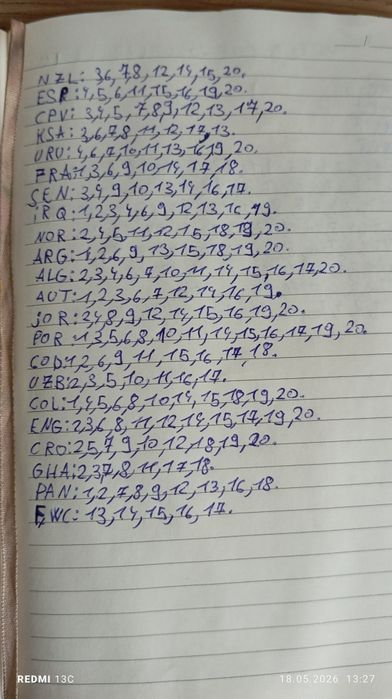 NZL: 3,6,7,8,12,14,15,20.
ESP: 4,5,6,11,15,16,19,20.
CPV: 3,4,5,7,8,9,12,13,17,20.
KSA: 3,6,7,8,11,12,17,13.
URU: 4,6,7,10,11,13,16,19,20.
FRA: 1,3,6,9,10,14,17,18.
SEN: 3,4,9,10,13,14,16,17.
iRQ: 1,2,3,4,6,9,12,13,16,19.
NOR: 2,4,5,11,12,15,18,19,20.
ARG: 1,2,6,9,13,15,18,19,20.
ALG: 2,3,4,6,7,10,11,14,15,16,17,20.
AUT: 1,2,3,6,7,12,14,16,19.
jOR: 3,4,8,9,12,14,15,16,19,20.
POR: 1,3,5,6,8,10,11,14,15,16,17,19,20.
COD: 1,2,6,9,11,15,16,17,18.
UZB: 2,3,5,10,11,16,17.
COL: 1,4,5,6,8,10,14,15,18,19,20.
ENG: 2,3,6,8,11,12,14,15,17,19,20.
CRO: 2,5,7,9,10,12,18,19,20.
GHA: 2,3,7,8,11,17,18.
PAN: 1,2,7,8,9,12,13,16,18.
FWC: 13,14,15,16,17.
REDMI 13C
18.05.2026 13:27